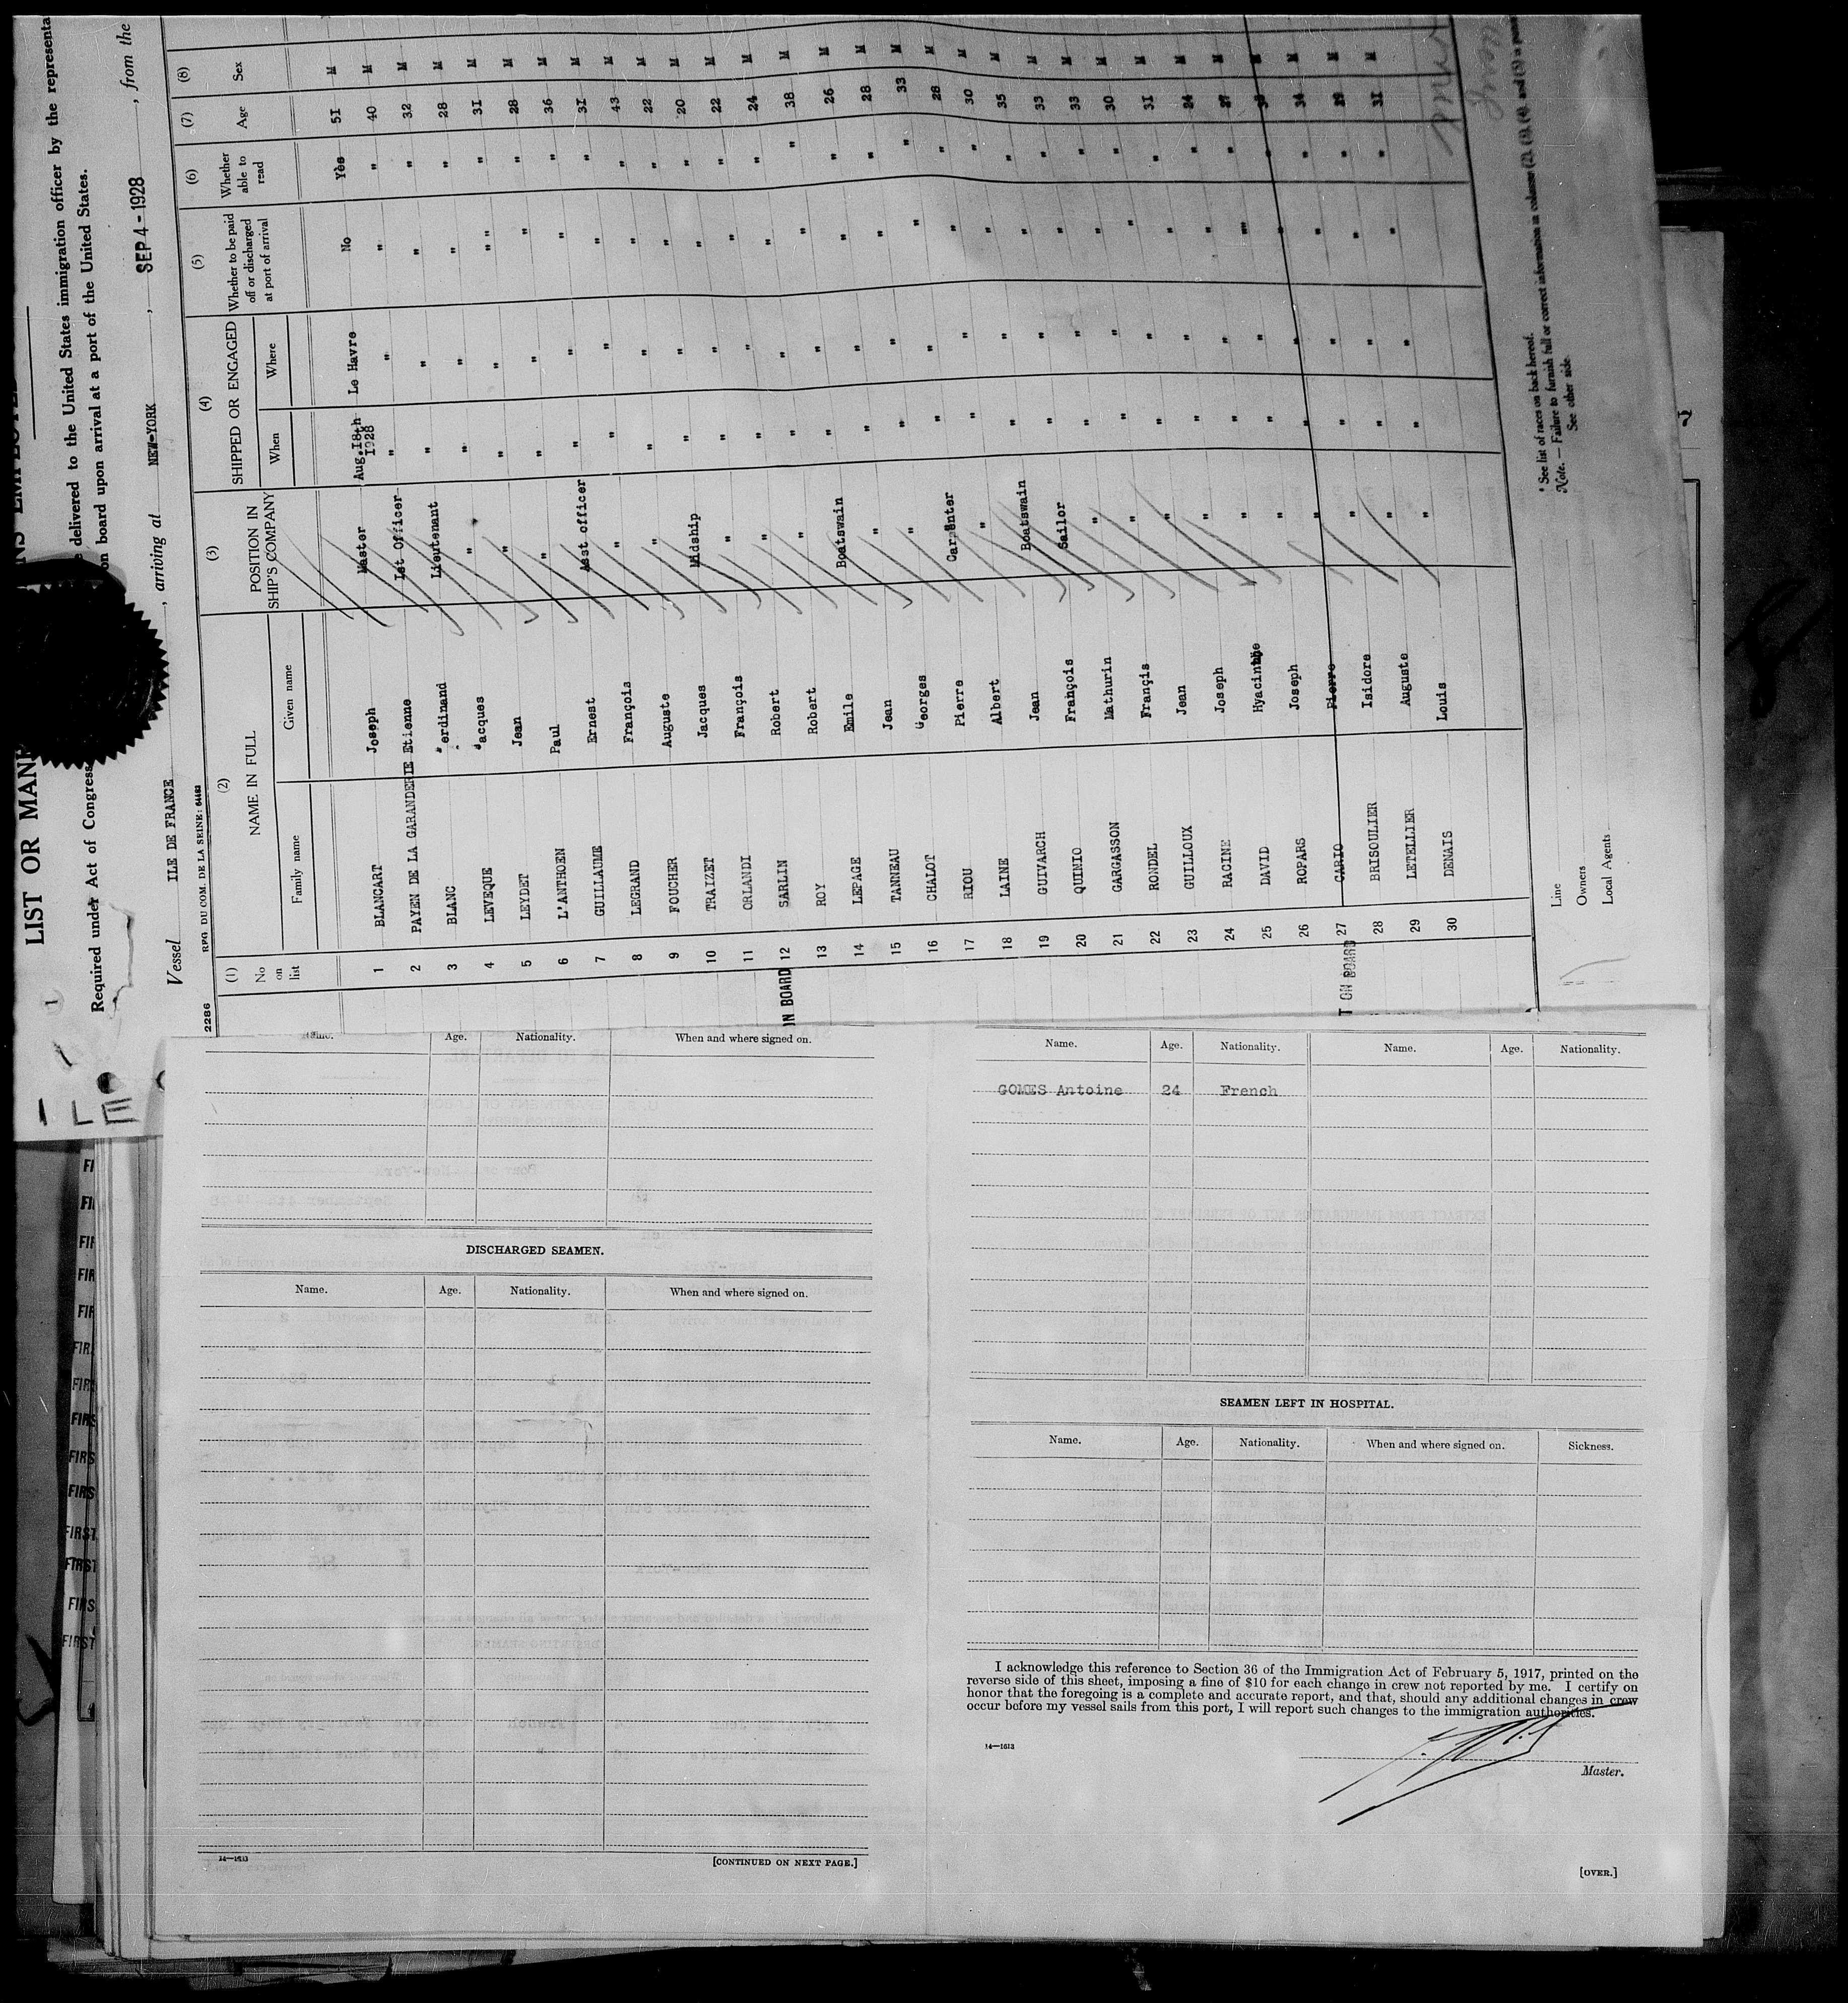 LIST OR MAN
Required under Act of Congress
delivered to the United States immigration officer by the representa
on board upon arrival at a port of the United States.
Vessel ILE DE FRANCE, arriving at NEW-YORK, SEP 4 - 1928, from the
2286 RPG DU COM. DE LA SEINE: 64483
(1) (2) (3) (4) (5) (6) (7) (8)
No on list NAME IN FULL POSITION IN SHIP'S COMPANY SHIPPED OR ENGAGED Whether to be paid off or discharged at port of arrival Whether able to read Age Sex
Family name Given name When Where
1 BLANCART Joseph Master Aug.18th 1928 Le Havre No Yès 51 M
2 PAYEN DE LA GARANDERIE Etienne 1st Officer " " " " 40 M
3 BLANC Ferdinand Lieutenant " " " " 32 M
4 LEVEQUE Jacques " " " " " 28 M
5 LEYDET Jean " " " " " 31 M
6 L'ANTHOEN Paul " " " " " 28 M
7 GUILLAUME Ernest Asst officer " " " " 36 M
8 LEGRAND François " " " " " 31 M
9 FOUCHER Auguste " " " " " 43 M
10 TRAIZET Jacques Midship " " " " 22 M
11 ORLANDI François " " " " " 20 M
IN BOARD 12 SARLIN Robert " " " " " 22 M
13 ROY Robert " " " " " 24 M
14 LEPAGE Emile Boatswain " " " " 38 M
15 TANNEAU Jean " " " " " 26 M
16 CHALOT Georges " " " " " 28 M
17 RIOU Pierre Carpenter " " " " 33 M
18 LAINE Albert " " " " " 28 M
19 GUIVARCH Jean Boatswain " " " " 30 M
20 QUINIO François Sailor " " " " 35 M
21 GARGASSON Mathurin " " " " " 33 M
22 RONDEL Françis " " " " " 33 M
23 GUILLOUX Jean " " " " " 30 M
24 RACINE Joseph " " " " " 31 M
25 DAVID Hyacinthe " " " " " 24 M
26 ROPARS Joseph " " " " " 27 M
T ON BOARD 27 CARIO Pierre " " " " " M
28 BRISOULIER Isidore " " " " " 34 M
29 LETELLIER Auguste " " " " " 29 M
30 DENAIS Louis " " " " " 31 M
Line
Owners
Local Agents
* See list of races on back hereof.
Note. — Failure to furnish full or correct information in columns (2), (3), (4), and (5) is
See other side
ILE
Name. Age. Nationality. When and where signed on.
DISCHARGED SEAMEN.
Name. Age. Nationality. When and where signed on.
14—1613
[CONTINUED ON NEXT PAGE.]
Name. Age. Nationality. Name. Age. Nationality.
GOMES Antoine 24 French
SEAMEN LEFT IN HOSPITAL.
Name. Age. Nationality. When and where signed on. Sickness.
I acknowledge this reference to Section 36 of the Immigration Act of February 5, 1917, printed on the
reverse side of this sheet, imposing a fine of $10 for each change in crew not reported by me. I certify on
honor that the foregoing is a complete and accurate report, and that, should any additional changes in crew
occur before my vessel sails from this port, I will report such changes to the immigration authorities.
14—1613
Master.
[OVER.]
FI
FI
FIR
FIR
FIR
FIR
FIR
FIRS
FIRS
FIRS
FIRST
FIRST
FIRS
FIRST